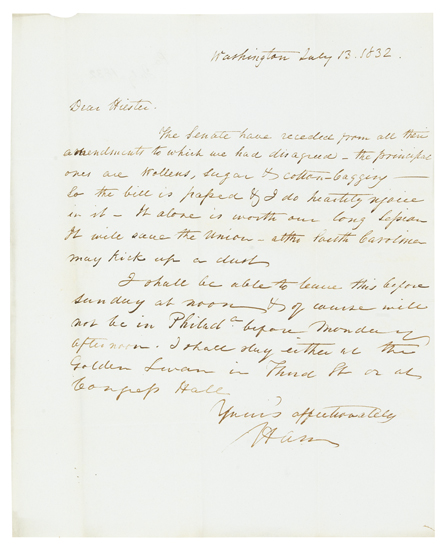 Washington July 13. 1832.
Dear Hiester.
The Senate have receded from all their
amendments to which we had disagreed – the principal
ones are Wollens, sugar & cotton-bagging –
So the bill is passed & I do heartily rejoice
in it – It alone is worth our long session
It will save the Union – altho South Carolina
may kick up a dust
I shall be able to leave this before
sunday at noon & of course will
not be in Philad.a before Monday
afternoon. I shall stay either at the
Golden Swan in Third St or at
Congress Hall
Your's affectionately